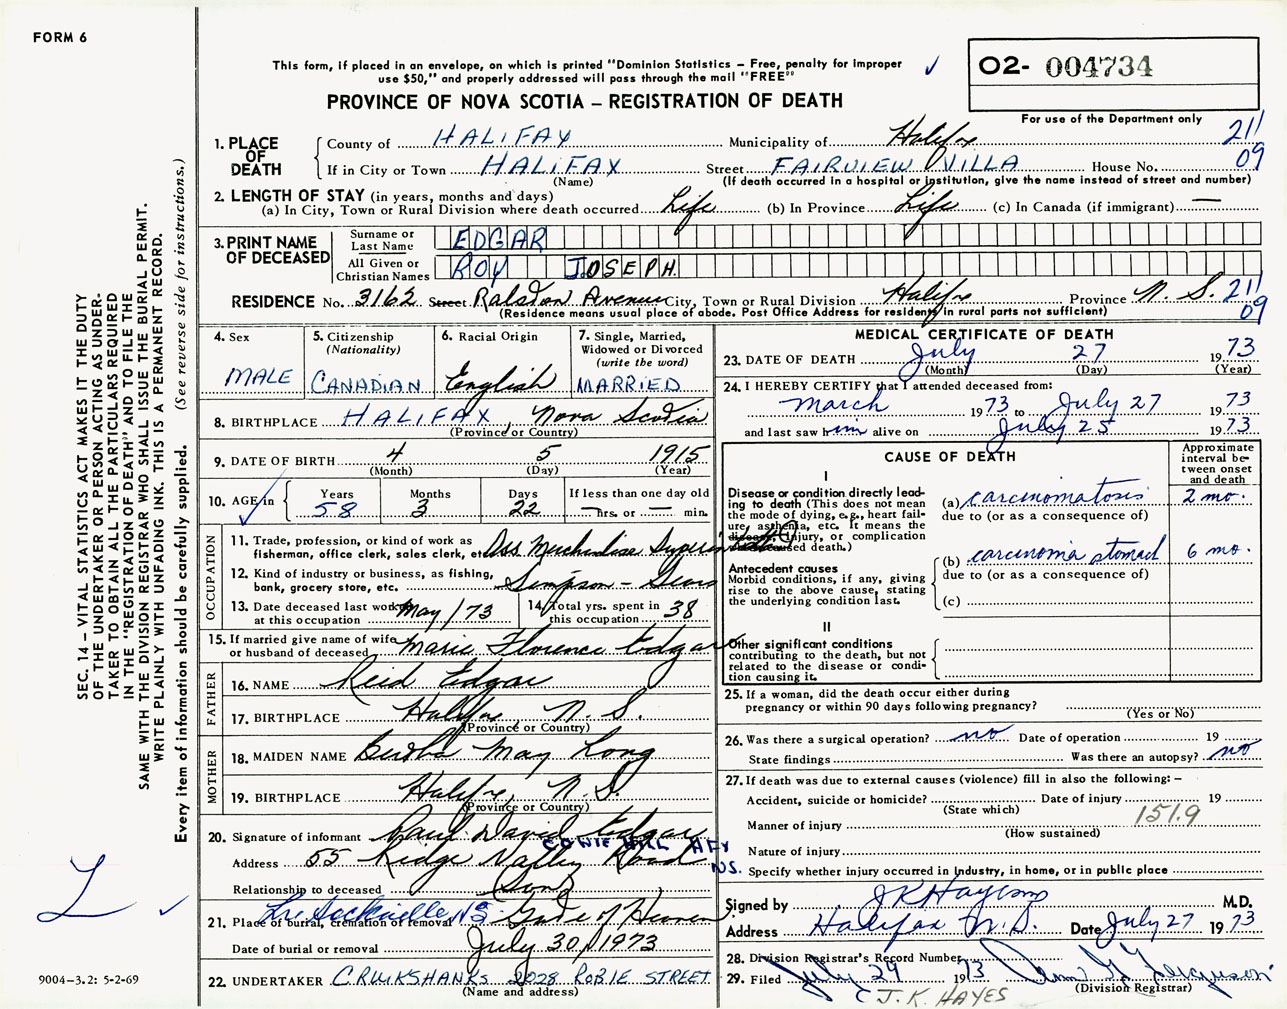 FORM 6
This form, if placed in an envelope, on which is printed "Dominion Statistics – Free, penalty for improper
use $50," and properly addressed will pass through the mail "FREE"
PROVINCE OF NOVA SCOTIA – REGISTRATION OF DEATH
O2- 004734
For use of the Department only
SEC. 14 – VITAL STATISTICS ACT MAKES IT THE DUTY
OF THE UNDERTAKER OR PERSON ACTING AS UNDER-
TAKER TO OBTAIN ALL THE PARTICULARS REQUIRED
IN THE "REGISTRATION OF DEATH" AND TO FILE THE
SAME WITH THE DIVISION REGISTRAR WHO SHALL ISSUE THE BURIAL PERMIT.
WRITE PLAINLY WITH UNFADING INK. THIS IS A PERMANENT RECORD.
Every item of information should be carefully supplied. (See reverse side for instructions.)
1. PLACE OF DEATH
County of HALIFAX Municipality of Halifax 211
If in City or Town HALIFAX Street FAIRVIEW VILLA House No. 09
(Name) (If death occurred in a hospital or institution, give the name instead of street and number)
2. LENGTH OF STAY (in years, months and days)
(a) In City, Town or Rural Division where death occurred Life (b) In Province Life (c) In Canada (if immigrant) —
3. PRINT NAME OF DECEASED
Surname or Last Name EDGAR
All Given or Christian Names ROY JOSEPH.
RESIDENCE No. 3162 Street Ralston Avenue City, Town or Rural Division Halifax Province N.S. 211
(Residence means usual place of abode. Post Office Address for residents in rural parts not sufficient) 09
4. Sex
MALE
5. Citizenship
(Nationality)
CANADIAN
6. Racial Origin
English
7. Single, Married,
Widowed or Divorced
(write the word)
MARRIED
8. BIRTHPLACE HALIFAX Nova Scotia
(Province or Country)
9. DATE OF BIRTH 4 5 1915
(Month) (Day) (Year)
10. AGE in
Years 58 Months 3 Days 22 If less than one day old
— hrs. or — min.
OCCUPATION
11. Trade, profession, or kind of work as
fisherman, office clerk, sales clerk, etc. Ass Merchandise Superintendent
12. Kind of industry or business, as fishing,
bank, grocery store, etc. Simpson - Sears
13. Date deceased last worked
at this occupation May/73
14. Total yrs. spent in
this occupation 38
15. If married give name of wife
or husband of deceased Marie Florence Edgar
FATHER
16. NAME Reid Edgar
17. BIRTHPLACE Halifax N.S.
(Province or Country)
MOTHER
18. MAIDEN NAME Bertha May Long
19. BIRTHPLACE Halifax, N.S.
(Province or Country)
20. Signature of informant Paul David Edgar
COWIE HILL HFX
Address 55 Ridge Valley Road N.S.
Relationship to deceased (Son)
21. Place of burial, cremation or removal Lr. Sackville NS Gate of Heaven
Date of burial or removal July 30/1973
22. UNDERTAKER CRUIKSHANKS 2028 ROBIE STREET
(Name and address)
MEDICAL CERTIFICATE OF DEATH
23. DATE OF DEATH July 27 1973
(Month) (Day) (Year)
24. I HEREBY CERTIFY that I attended deceased from:
March 1973 to July 27 1973
and last saw him alive on July 25 1973
CAUSE OF DEATH
Approximate interval between onset and death
I
Disease or condition directly lead-
ing to death (This does not mean
the mode of dying, e.g., heart fail-
ure, asthenia, etc. It means the
disease, injury, or complication
which caused death.)
(a) carcinomatosis 2 mo.
due to (or as a consequence of)
(b) carcinoma stomach 6 mo.
due to (or as a consequence of)
Antecedent causes
Morbid conditions, if any, giving
rise to the above cause, stating
the underlying condition last.
(c)
II
Other significant conditions
contributing to the death, but not
related to the disease or condi-
tion causing it.
25. If a woman, did the death occur either during
pregnancy or within 90 days following pregnancy?
(Yes or No)
26. Was there a surgical operation? no Date of operation 19
State findings Was there an autopsy? no
27. If death was due to external causes (violence) fill in also the following: –
Accident, suicide or homicide? Date of injury 19
(State which)
Manner of injury 151.9
(How sustained)
Nature of injury
Specify whether injury occurred in Industry, in home, or in public place
Signed by J K Hayes M.D.
Address Halifax N.S. Date July 27 1973
28. Division Registrar's Record Number
29. Filed July 29 1973
(Division Registrar)
(J.K. HAYES
9004-3.2: 5-2-69